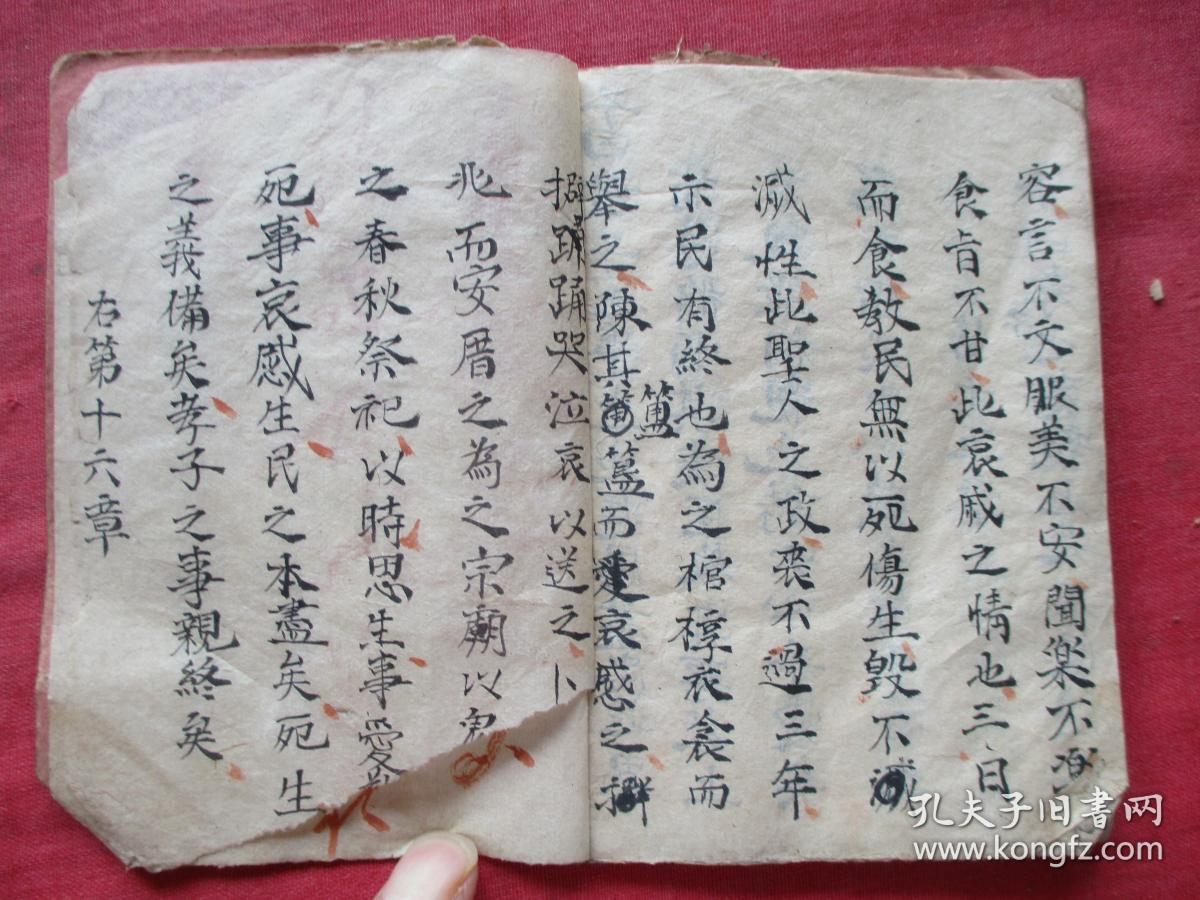 容言不文服美不安聞楽不
食旨不甘此哀戚之情也三日
而食教民無以死傷生毀不
滅性此聖人之政喪不過三年
示民有終也為之棺椁衣衾而
舉之陳其簠簋而哀感之
擗踊哭泣哀以送之卜
兆而安厝之為之宗廟以鬼
之春秋祭祀以時思生事愛
死事哀感生民之本盡矣死生
之義備矣孝子之事親終矣
右第十六章
孔夫子旧书网
www.kongfz.com